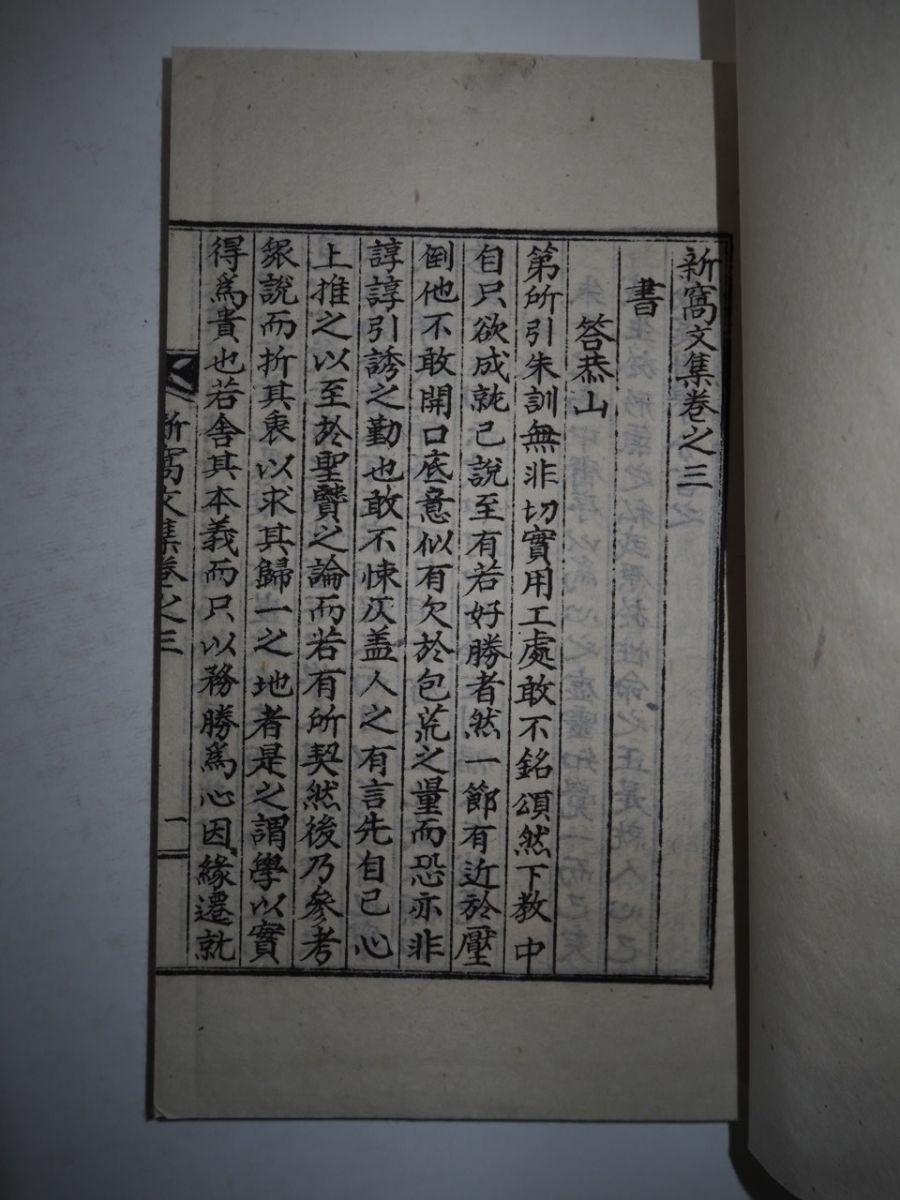 新窩文集卷之三
書
答恭山
第所引朱訓無非切實用工處敢不銘頌然下教中
自只欲成就己說至有若好勝者然一節有近於壓
倒他不敢開口底意似有欠於包荒之量而恐亦非
諄諄引誘之勤也敢不悚仄盖人之有言先自己心
上推之以至於聖贒之論而若有所契然後乃參考
衆說而折其衷以求其歸一之地者是之謂學以實
得爲貴也若舍其本義而只以務勝爲心因緣遷就
新窩文集卷之三
一